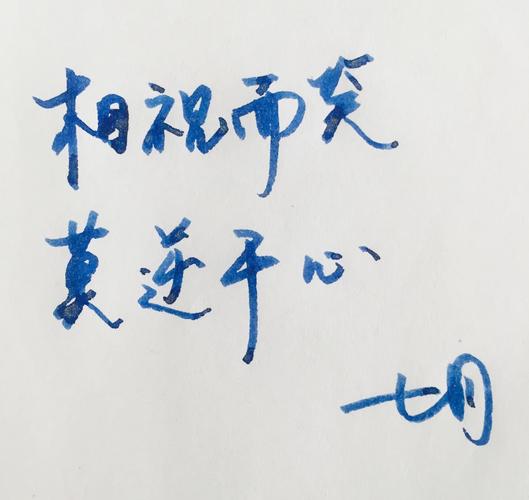 相视而笑
莫逆于心
七月